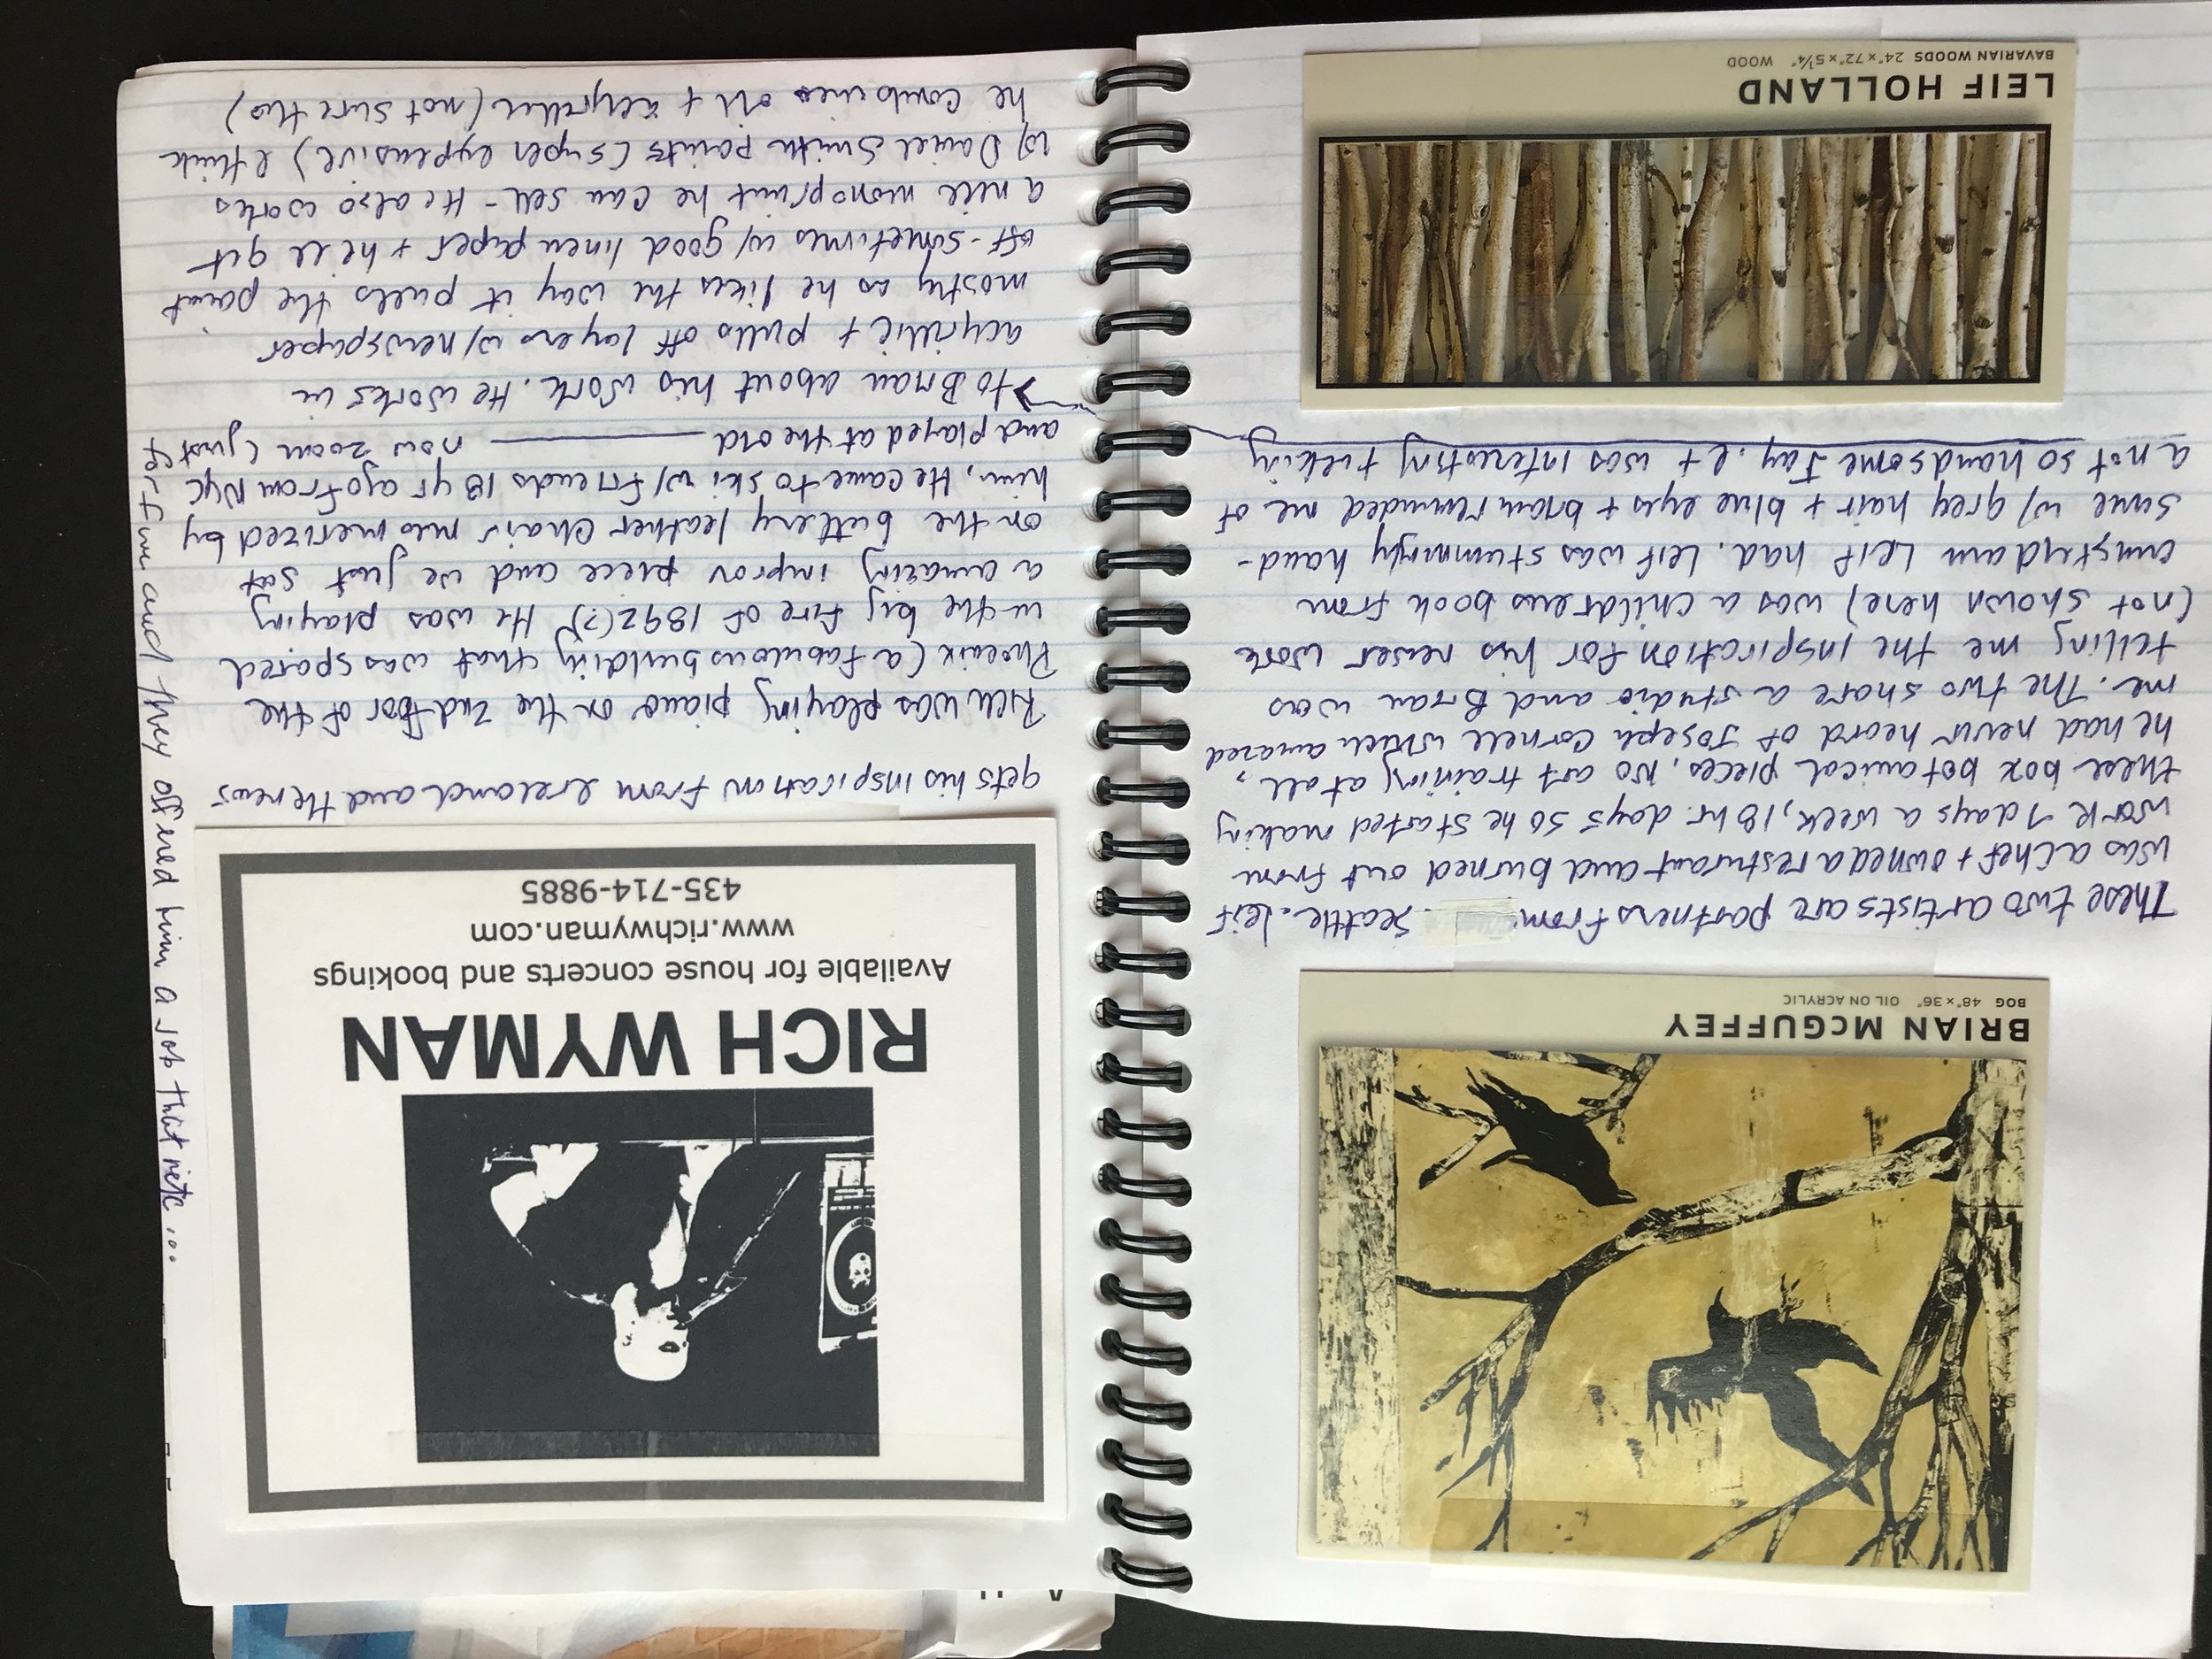 BRIAN McGUFFEY
BOG 48"x36" OIL ON ACRYLIC
These two artists are partners from Seattle. Leif
was a chef + owned a resturant and burned out from
work 7 days a week, 18 hr. days so he started making
these box botanical pieces, No art training at all,
he had never heard of Joseph Cornell which amazed
me. The two share a studio and Brian was
telling me the inspiration for his newer work
(not shown here) was a childrens book from
amsterdam Leif had. Leif was stunningly hand-
some w/ grey hair + blue eyes + brian reminded me of
a not so handsome Jay. It was interesting talking
LEIF HOLLAND
BAVARIAN WOODS 24"x72"x5¼" WOOD
RICH WYMAN
Available for house concerts and bookings
www.richwyman.com
435-714-9885
gets his inspiration from Ireland and the news
Rich was playing piano on the 2nd floor of the
Phoenix (a fabulous building that was spared
in the big fire of 1892(?)) He was playing
a amazing improv piece and we just sat
on the buttery leather chairs mesmerized by
him, He came to ski w/ friends 18 yr ago from NYC
and played at the old now zoom (just
for fun and they offered him a job that nite ...
to Brian about his work. He works in
acyrillic + pulls off layers w/ newspaper
mostly as he likes the way it pulls the paint
off - sometimes w/ good linen paper + he'll get
a nice monoprint he can sell - He also works
w/ Daniel Smith paints (super expensive) I think
he combines oil + acyrillic (not sure tho)